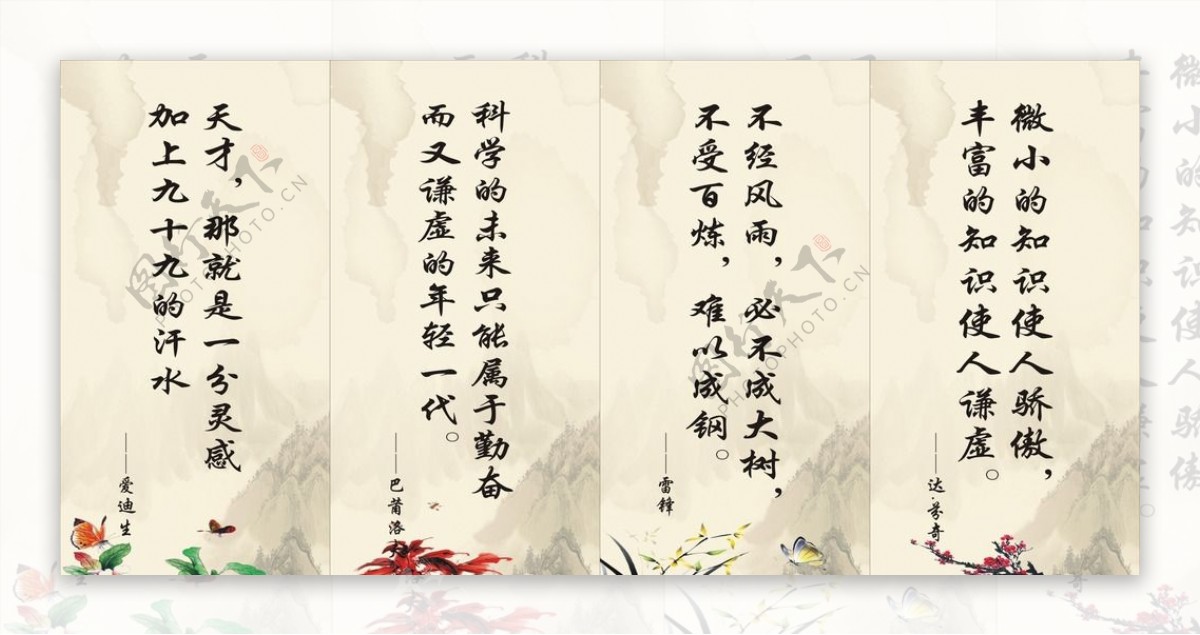 天才，那就是一分灵感
加上九十九的汗水
——爱迪生
科学的未来只能属于勤奋
而又谦虚的年轻一代。
——巴莆洛夫
不经风雨，必不成大树，
不受百炼，难以成钢。
——雷锋
微小的知识使人骄傲，
丰富的知识使人谦虚。
——达·芬奇
图行天下
PHOTO.CN
图行天下
PHOTO.CN